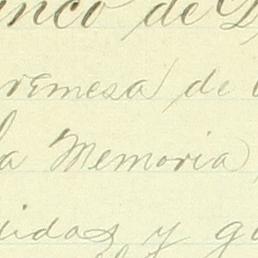 nco de D
remesa de
la Memoria
idas y g